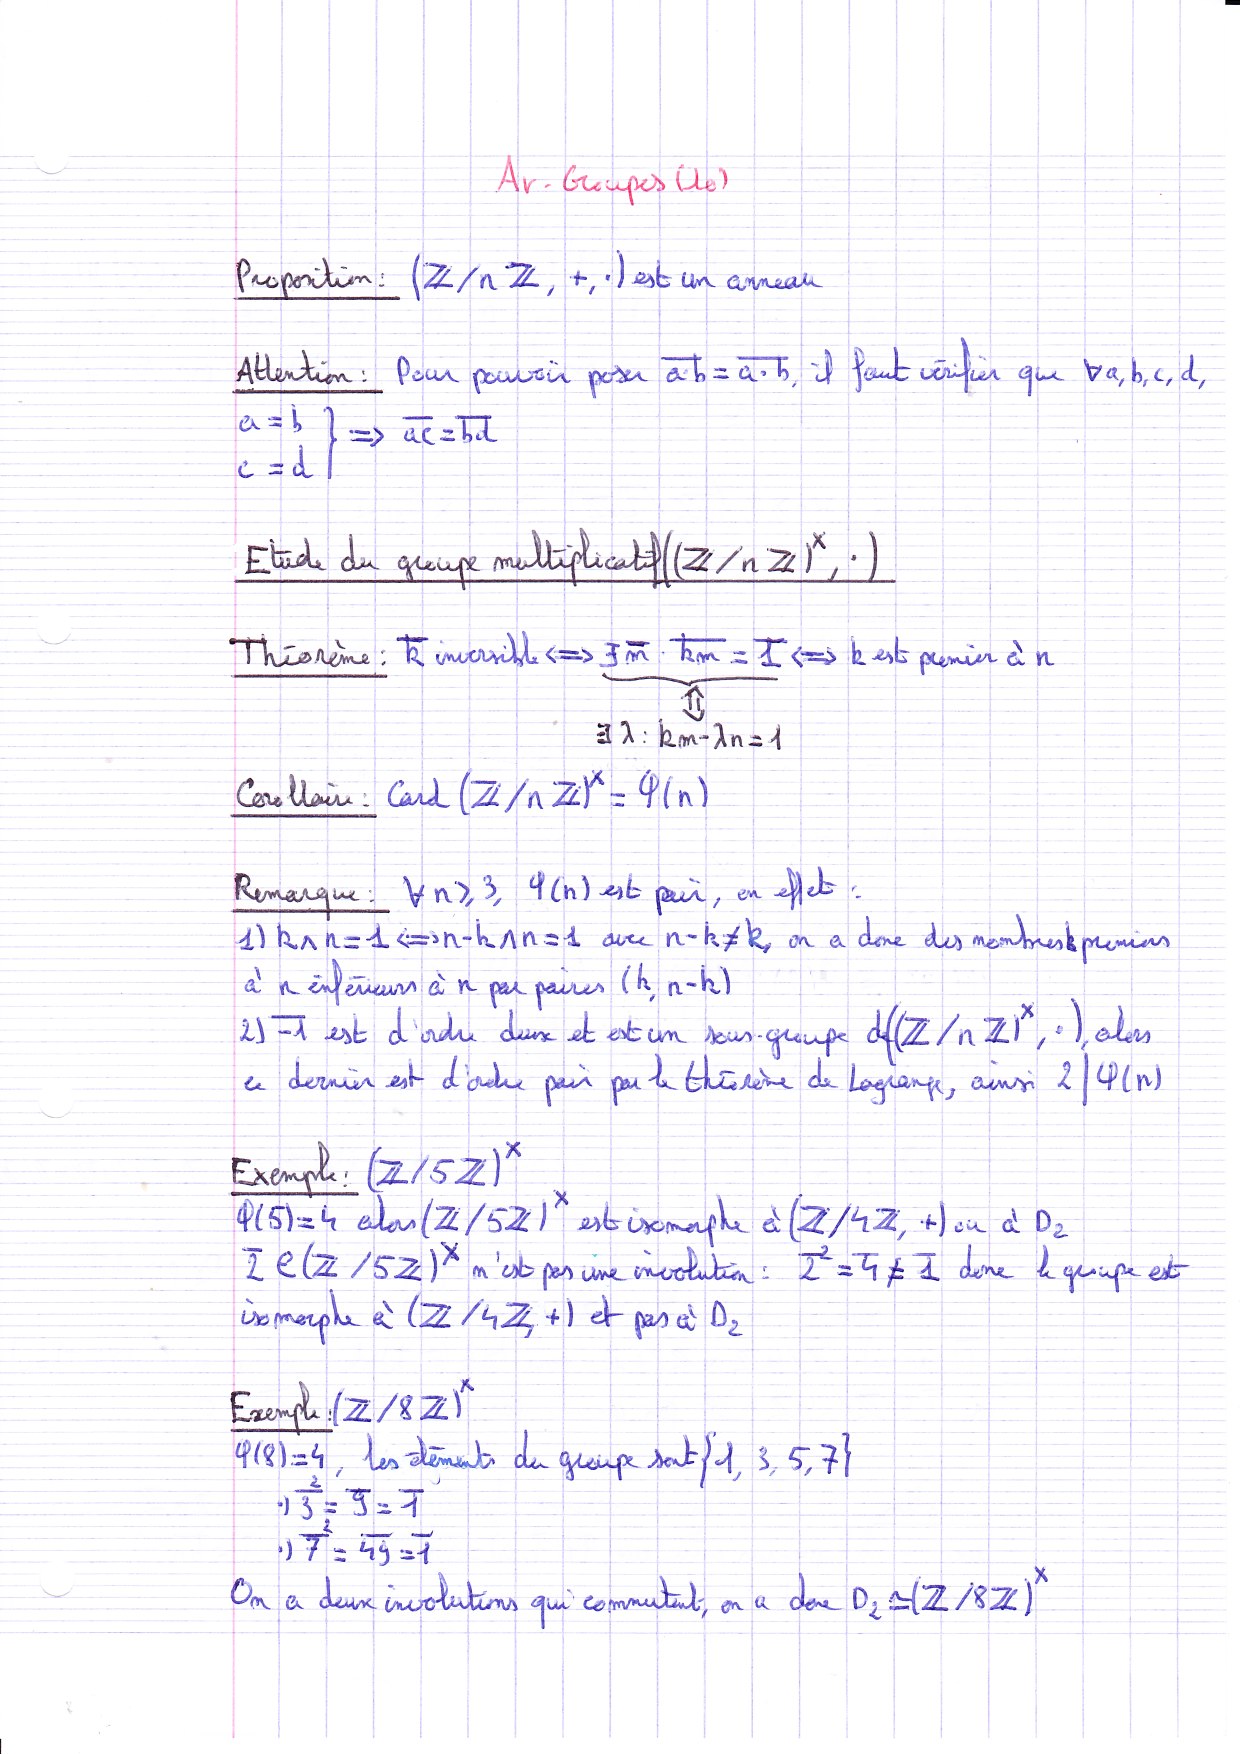 Ar-Groupes (10)
Proposition: (ℤ/nℤ, +, ·) est un anneau
Attention: Pour pouvoir poser a̅·b̅ = \overline{a·b}, il faut vérifier que ∀a, b, c, d,
a = b
c = d } ⟹ \overline{ac} = \overline{bd}
Etude du groupe multiplicatif ((ℤ/nℤ)^×, ·)
Théorème: k̅ inversible ⟺ ∃ m̅ · \overline{km} = 1̅ ⟺ k est premier à n
⇕
∃ λ : km - λn = 1
Corollaire: Card (ℤ/nℤ)^× = φ(n)
Remarque: ∀ n ⩾ 3, φ(n) est pair, en effet :
1) k∧n = 1 ⟺ n-k∧n = 1 avec n-k ≠ k, on a donc des nombres premiers
à n inférieurs à n par paires (k, n-k)
2) \overline{-1} est d'ordre deux et est un sous-groupe de ((ℤ/nℤ)^×, ·), alors
ce dernier est d'ordre pair par le théorème de Lagrange, ainsi 2 | φ(n)
Exemple: (ℤ/5ℤ)^×
φ(5) = 4 alors (ℤ/5ℤ)^× est isomorphe à (ℤ/4ℤ, +) ou à D₂
2̅ ∈ (ℤ/5ℤ)^× n'est pas une involution : 2̅² = 4̅ ≠ 1̅ donc le groupe est
isomorphe à (ℤ/4ℤ, +) et pas à D₂
Exemple: (ℤ/8ℤ)^×
φ(8) = 4, les éléments du groupe sont {1, 3, 5, 7}
·) 3̅² = 9̅ = 1̅
·) 7̅² = \overline{49} = 1̅
On a deux involutions qui commutent, on a donc D₂ ≃ (ℤ/8ℤ)^×